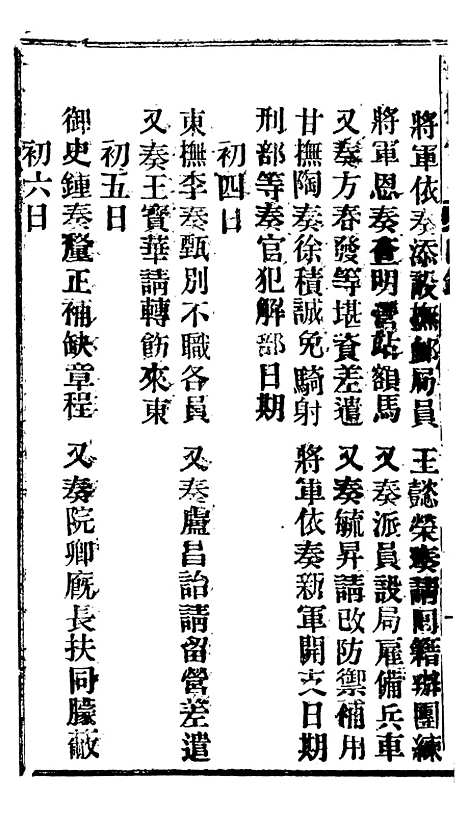 將軍依奏添設撫卹局員　王懿榮奏請回籍辦團練
將軍恩奏查明營站額馬　又奏派員設局雇備兵車
又奏方春發等堪資差遣　又奏毓昇請改防禦補用
甘撫陶奏徐積誠免騎射　將軍依奏新軍開支日期
刑部等奏官犯解部日期
初四日
東撫李奏甄別不職各員　又奏盧昌詒請留營差遣
又奏王寶華請轉飭來東
初五日
御史鍾奏釐正補缺章程　又奏院卿廐長扶同朦蔽
初六日